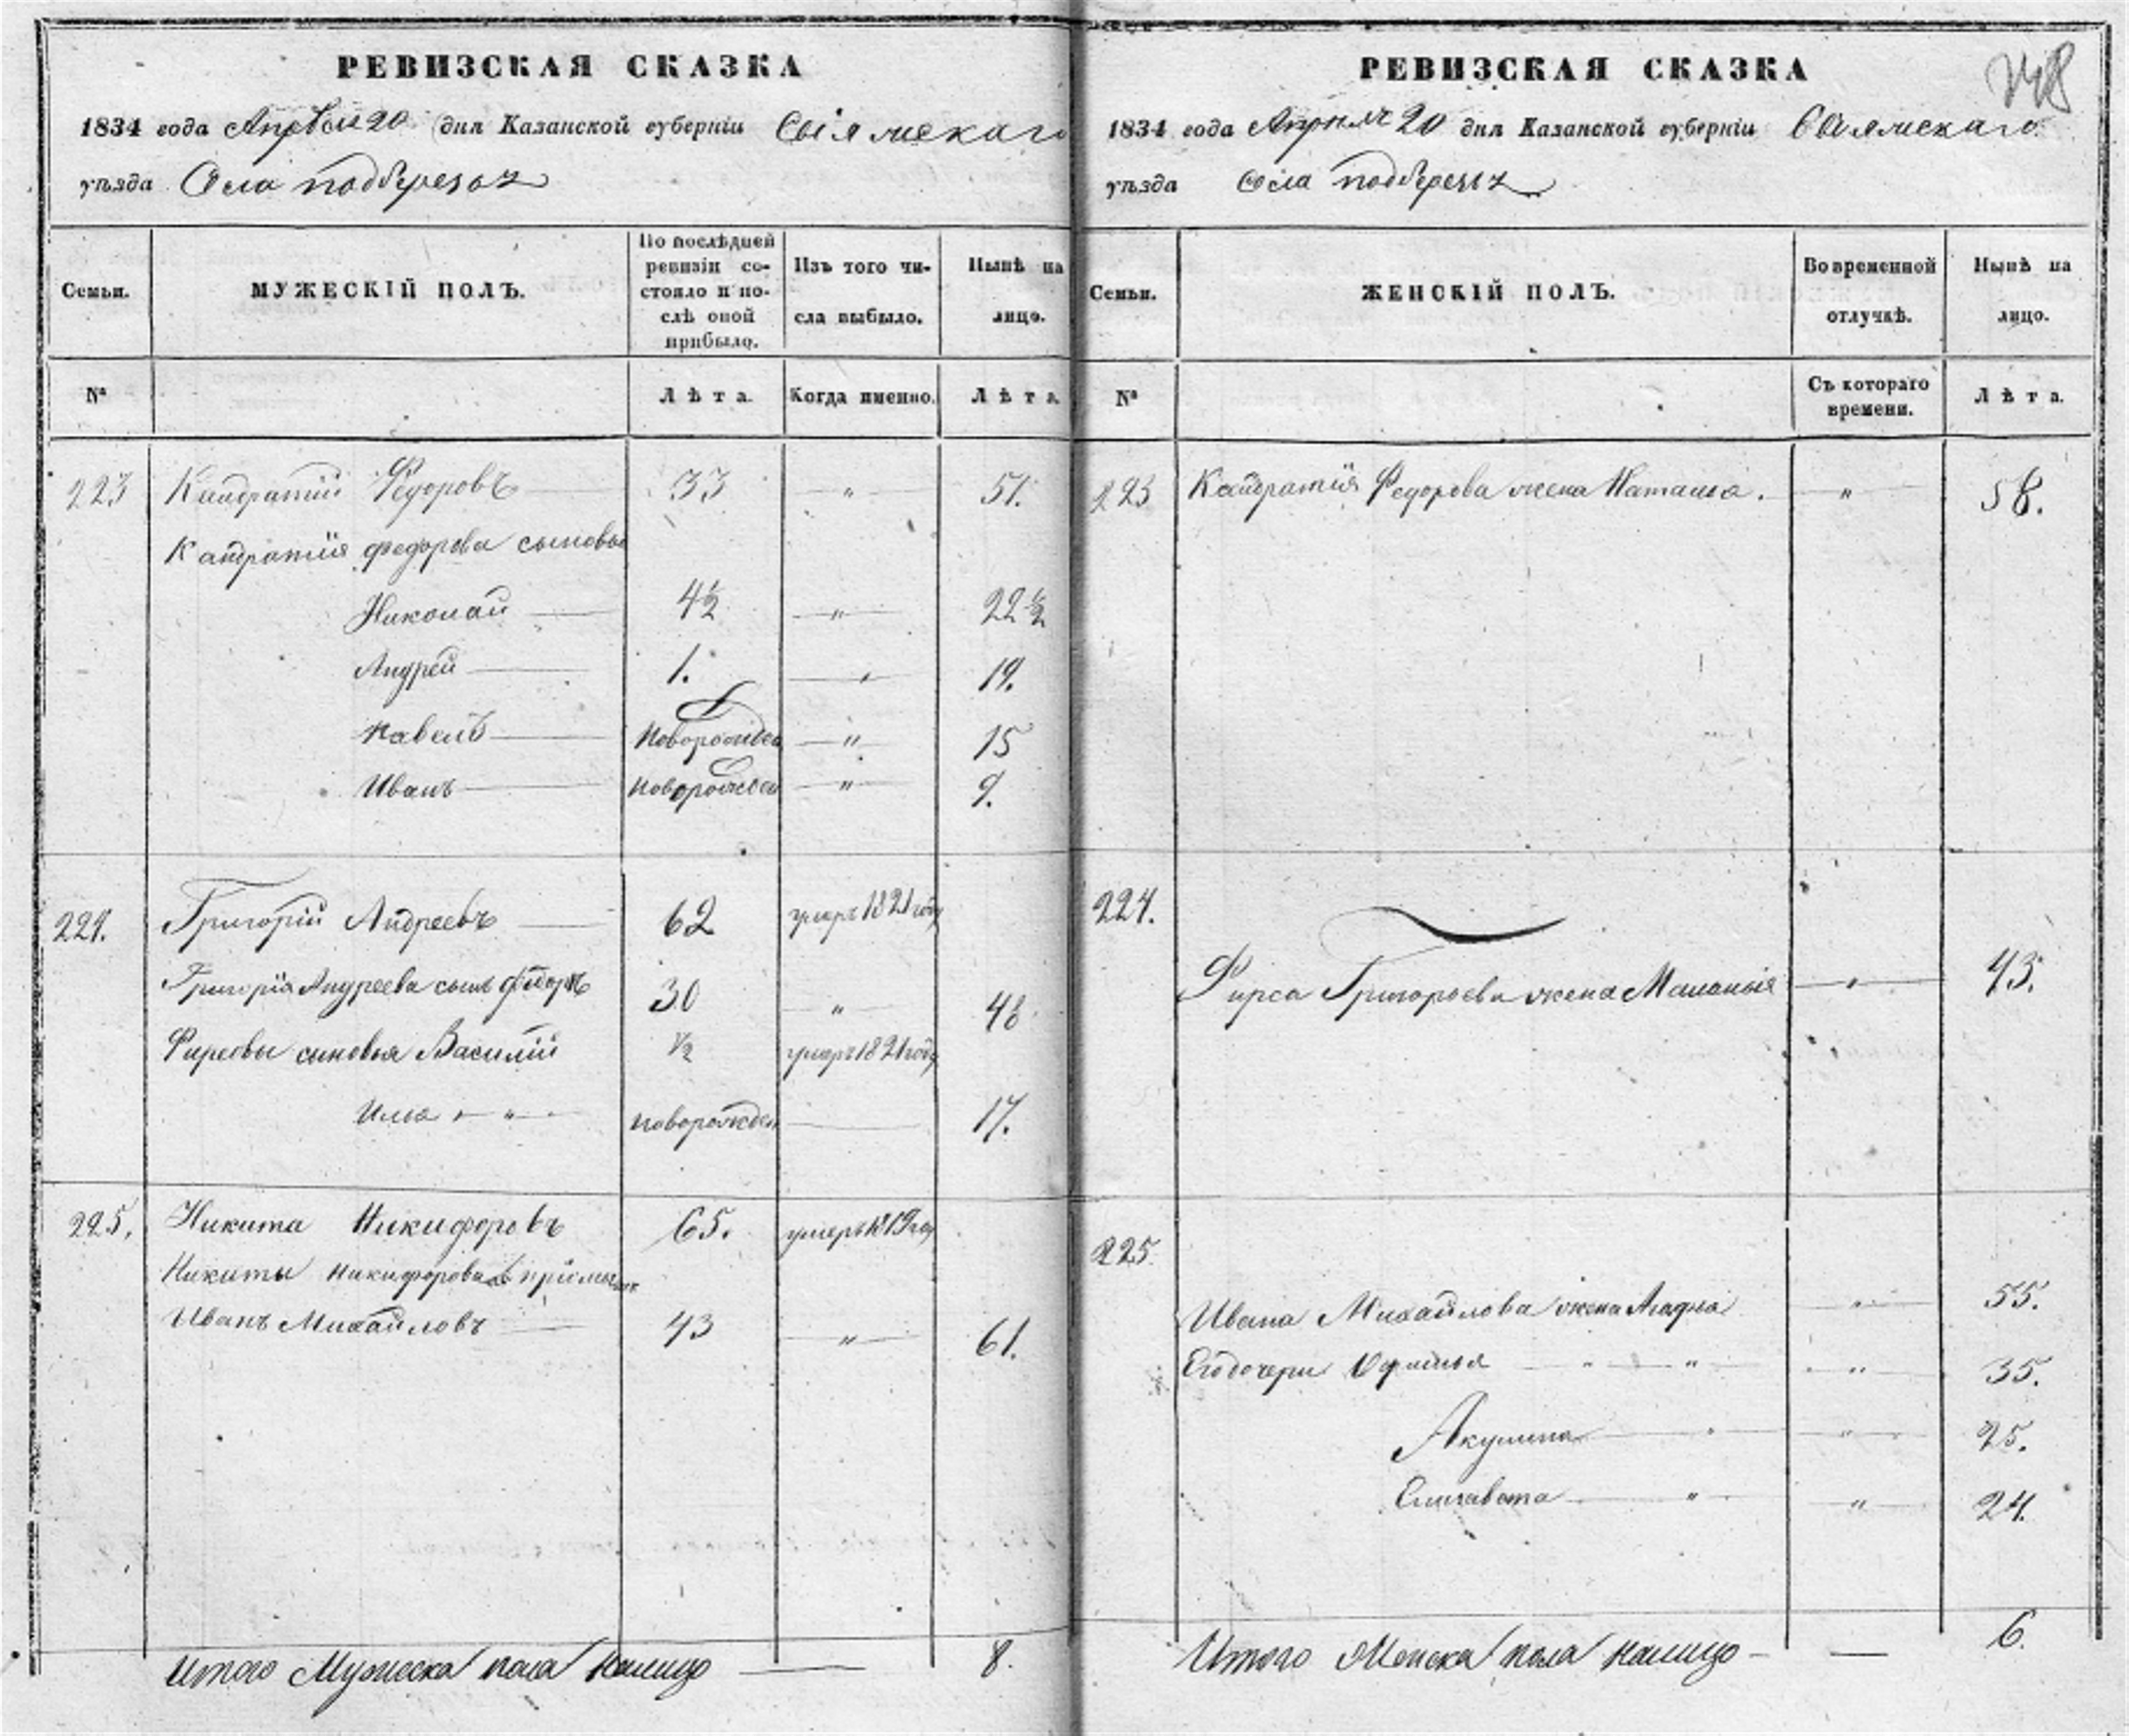 РЕВИЗСКАЯ СКАЗКА
1834 года Апреля 20 дня Казанской губерніи Свіяжскаго
уѣзда Села подберезья
Семьи.
МУЖЕСКІЙ ПОЛЪ.
По послѣдней ревизіи состояло и послѣ оной прибыло.
Изъ того числа выбыло.
Нынѣ на лицо.
№
Лѣта.
Когда именно.
Лѣта.
223 Кандратій Федоровъ 33 " 51.
Кандратія федорова сыновья
Николай 4½ " 22½
Андрей 1. " 19.
Павелъ Новорожден " 15
Иванъ новорожден " 9.
224. Григорій Андреевъ 62 умеръ 1821 году
Григорія Андреева сынъ 30 " 48
Фирсовы сыновья Василій ½ умеръ 1821 году
Илья " новорожден 17.
225. Никита Никифоровъ 65. умеръ 1819 году
Никиты Никифорова
Иванъ Михайловъ 43 " 61.
Итого Мужеска пола налицо 8.
248
РЕВИЗСКАЯ СКАЗКА
1834 года Апреля 20 дня Казанской губерніи Свіяжскаго
уѣзда Села подберезья
Семьи.
ЖЕНСКІЙ ПОЛЪ.
Во временной отлучкѣ.
Нынѣ на лицо.
№
Съ котораго времени.
Лѣта.
223 Кандратія Федорова жена Наталья. " 58.
224.
Фирса Григорьева жена Маланья " 43.
225.
Ивана Михайлова жена Агафья " 55.
Его дочери " " 35.
Акулина " " 25.
Елизавета " " 24.
Итого Женска пола налицо — 6.